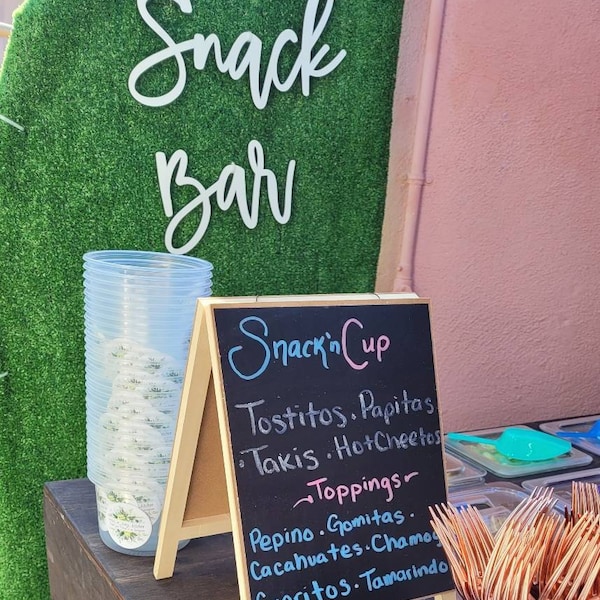 Snack
Bar
Snack'n Cup
Tostitos · Papitas
· Takis · Hot Cheetos
Toppings
Pepino · Gomitas ·
Cacahuates · Chamoy
Tamarindo